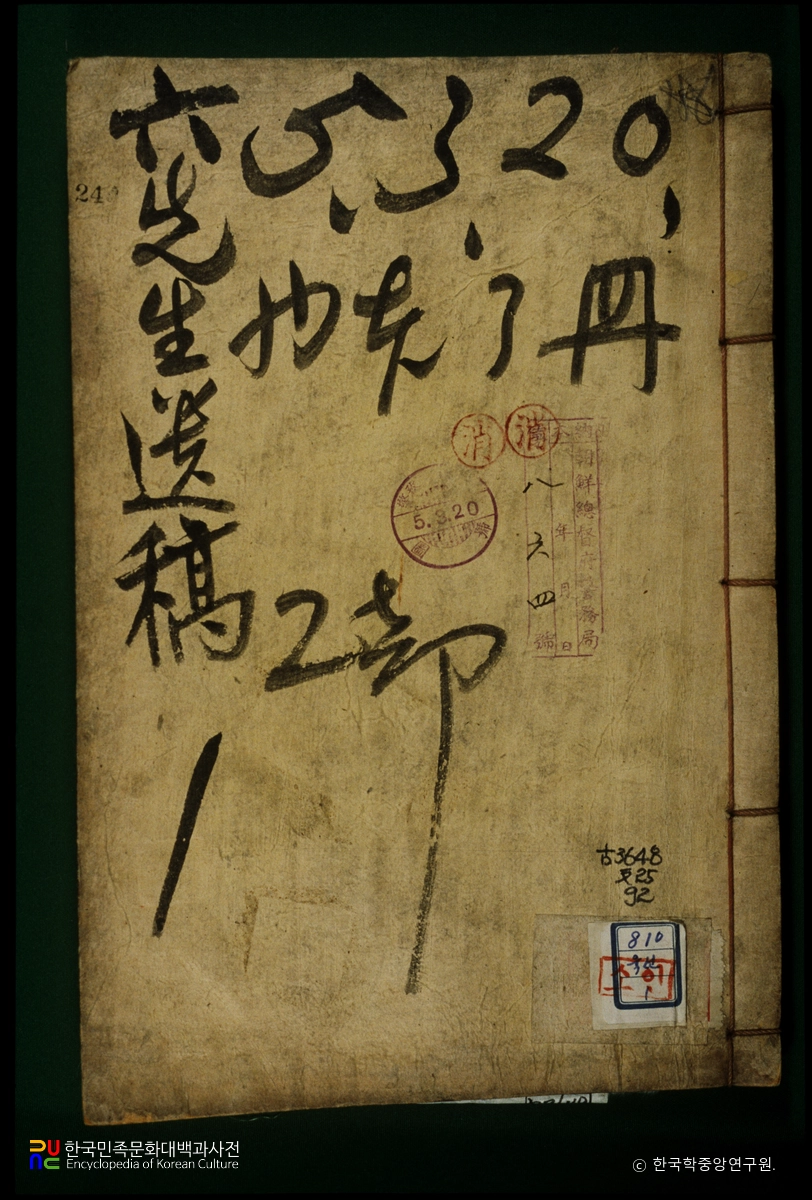 六先生遺稿
5,3,20,
了冊
2部
1
240
消
消
5.3.20
朝鮮總督府警務局
年 月 日
八六四
號
古3648
文25
92
810
1
한국민족문화대백과사전
Encyclopedia of Korean Culture
ⓒ 한국학중앙연구원.